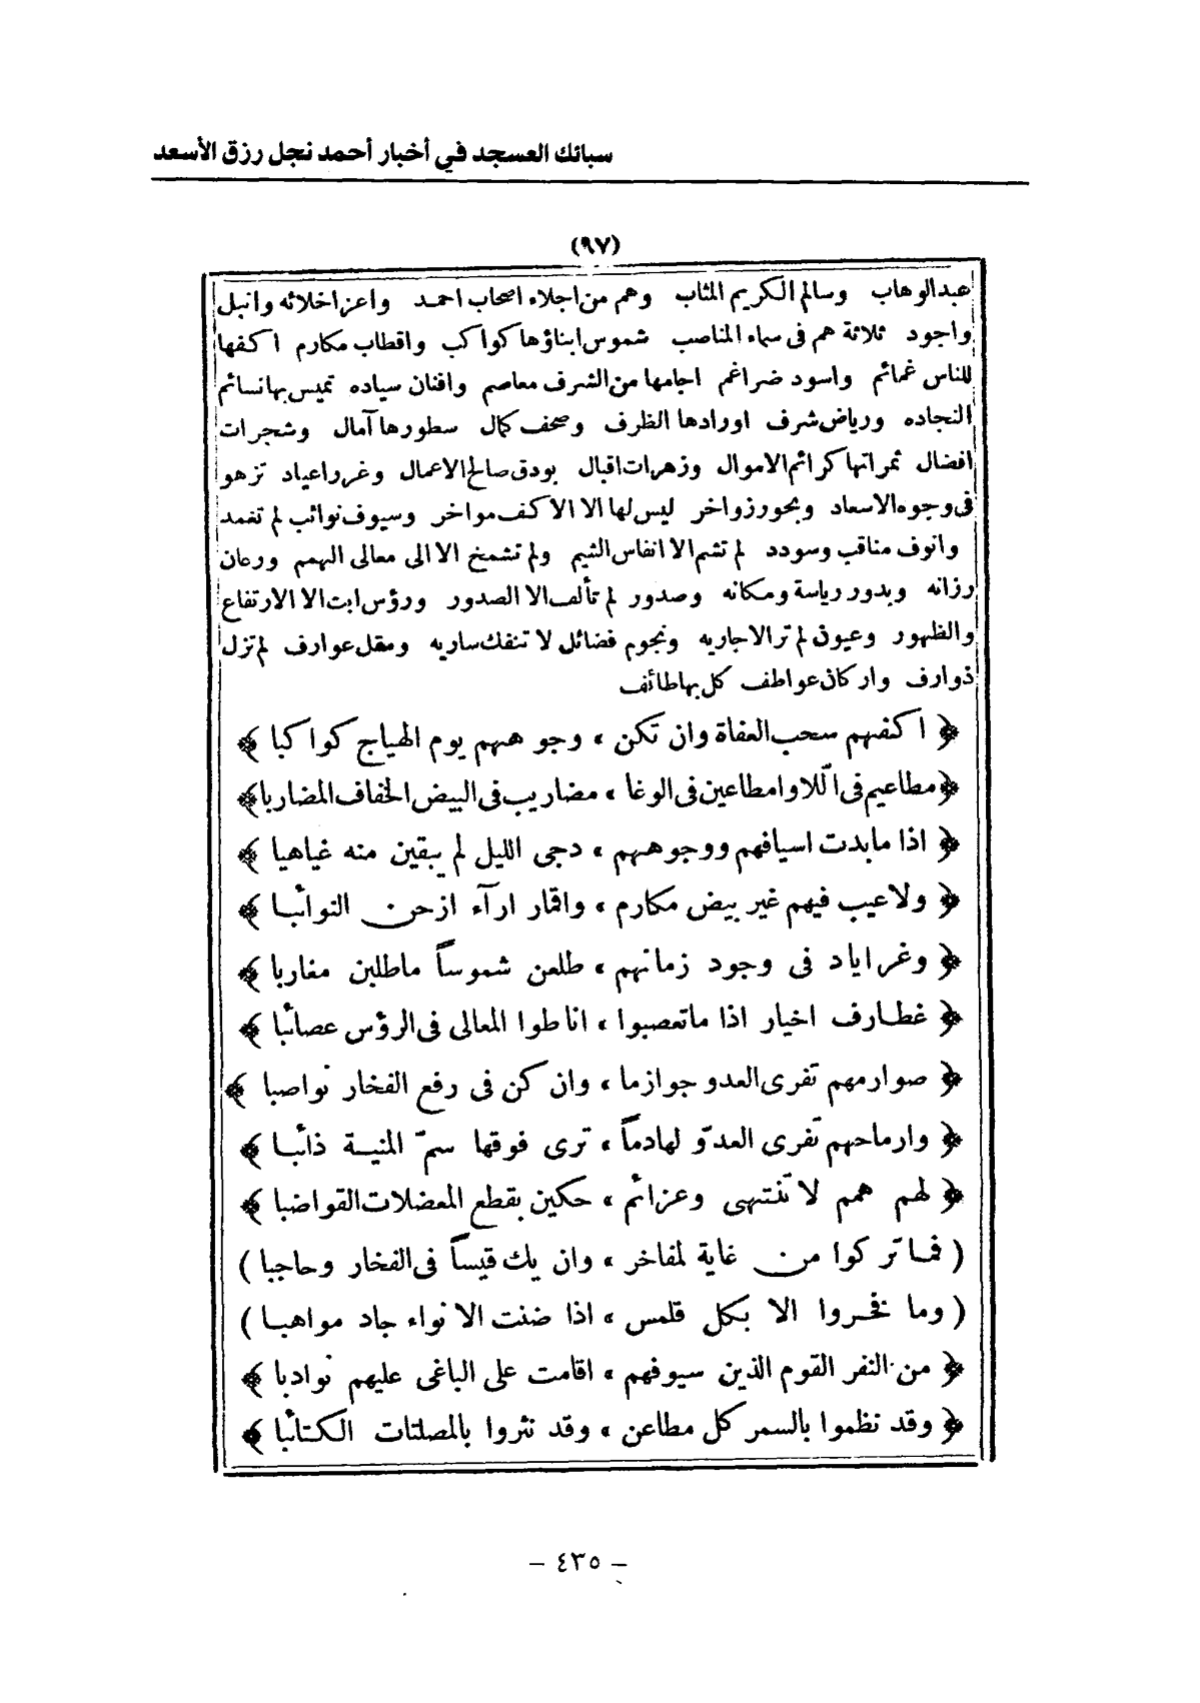 سبائك العسجد في أخبار أحمد نجل رزق الأسعد
(٩٧)
عبدالوهاب وسالم الكريم المثاب وهم من اجلاء اصحاب احمد واعز اخلائه وانبل
واجود ثلاثة هم فى سماء المناصب شموس ابناؤها كواكب واقطاب مكارم اكفها
للناس غمائم واسود ضراغم اجامها من الشرف معاصم وافنان سياده تميس بها نسائم
النجاده ورياض شرف اورادها الظرف وصحف كمال سطورها آمال وشجرات
افضال ثمراتها كرائم الاموال وزهرات اقبال بودق صالح الاعمال وغرر اعياد تزهو
فى وجوه الاسعاد وبحور زواخر ليس لها الا الاكف مواخر وسيوف نوائب لم تغمد
وانوف مناقب وسودد لم تشم الا انفاس الشيم ولم تشمخ الا الى معالى الهمم ورعان
رزانه وبدور رياسة ومكانه وصدور لم تألف الا الصدور ورؤس ابت الا الارتفاع
والظهور وعيون لم تر الا جاريه ونجوم فضائل لا تنفك ساريه ومقل عوارف لم تزل
ذوارف واركان عواطف كل بها طائف
﴿ اكفهم سحب العفاة وان تكن ، وجوههم يوم الهياج كواكبا ﴾
﴿ مطاعيم فى اللاوا مطاعين فى الوغا ، مضاريب فى البيض الخفاف المضاربا ﴾
﴿ اذا ما بدت اسيافهم ووجوههم ، دجى الليل لم يبقين منه غياهبا ﴾
﴿ ولا عيب فيهم غير بيض مكارم ، واقمار ارآء ازحن النوائبا ﴾
﴿ وغر اياد فى وجود زمانهم ، طلعن شموساً ماطلبن مغاربا ﴾
﴿ غطارف اخيار اذا ما تعصبوا ، اناطوا المعالى فى الرؤس عصائبا ﴾
﴿ صوارمهم تفرى العدو جوازما ، وان كن فى رفع الفخار نواصبا ﴾
﴿ وارماحهم تفرى العدوّ لهادماً ، ترى فوقها سمّ المنية ذائبا ﴾
﴿ لهم همم لا تنتهى وعزائم ، حكين بقطع المعضلات القواضبا ﴾
( فما تركوا من غاية لمفاخر ، وان يك قيساً فى الفخار وحاجبا )
( وما فخروا الا بكل قلمس ، اذا ضنت الانواء جاد مواهبا )
﴿ من النفر القوم الذين سيوفهم ، اقامت على الباغى عليهم نوادبا ﴾
﴿ وقد نظموا بالسمر كل مطاعن ، وقد نثروا بالمصلتات الكتائبا ﴾
– ٤٣٥ –